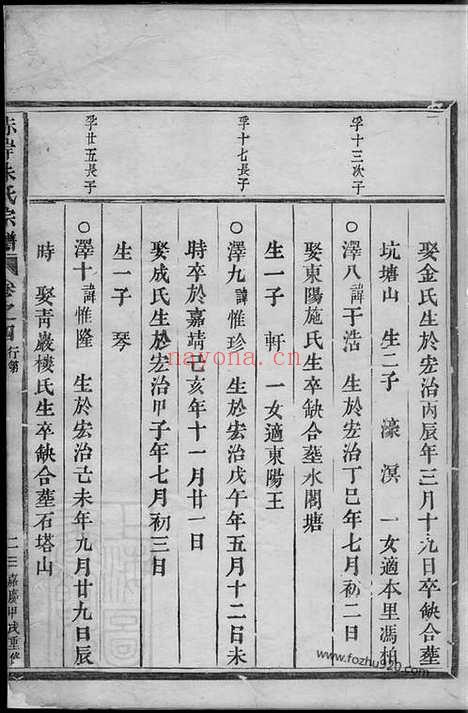 孚十三次子
孚十七長子
孚廿五長子
娶金氏生於宏治丙辰年三月十九日卒缺合塟
坑塘山 生二子 濠 溟 一女適本里馮柏
○澤八諱于浩 生於宏治丁巳年七月初二日
娶東陽施氏生卒缺合塟水閣塘
生一子 軒 一女適東陽王
○澤九諱惟珍 生於宏治戊午年五月十二日未
時卒於嘉靖己亥年十一月廿一日
娶成氏生於宏治甲子年七月初三日
生一子 琴
○澤十諱惟隆 生於宏治己未年九月廿九日辰
時 娶青巖樓氏生卒缺合塟石塔山
赤岸朱氏宗譜 卷之四 行第 二三 嘉慶甲戌重修
nayona.cn
www.fozhu920.com